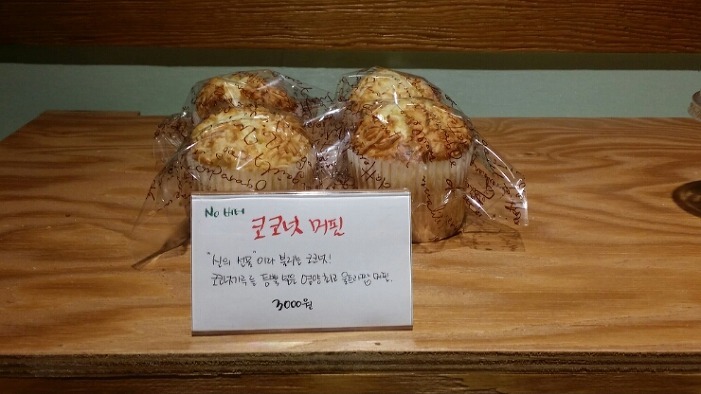 No 버터
코코넛 머핀
"신의 선물"이라 불리는 코코넛!
코코넛가루를 듬뿍 넣은 영양 최고 머핀.
3000원